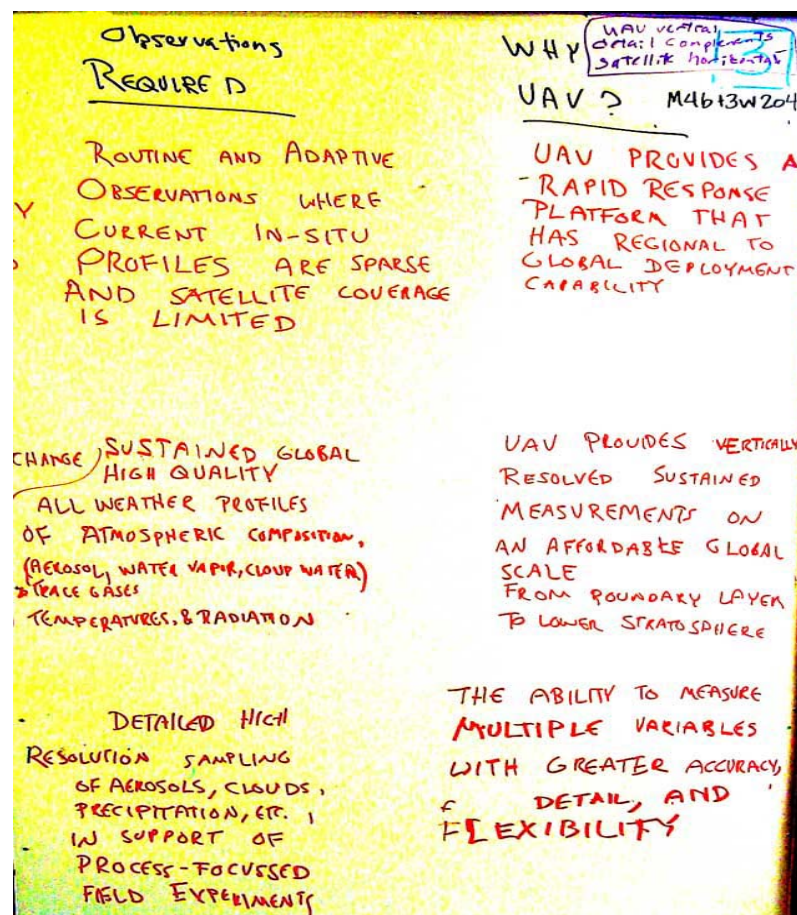 Observations
REQUIRED
ROUTINE AND ADAPTIVE
OBSERVATIONS WHERE
CURRENT IN-SITU
PROFILES ARE SPARSE
AND SATELLITE COVERAGE
IS LIMITED
CHANGE SUSTAINED GLOBAL
HIGH QUALITY
ALL WEATHER PROFILES
OF ATMOSPHERIC COMPOSITION,
(AEROSOL, WATER VAPOR, CLOUD WATER)
TRACE GASES
TEMPERATURES, & RADIATION
DETAILED HIGH
RESOLUTION SAMPLING
OF AEROSOLS, CLOUDS,
PRECIPITATION, ETC.,
IN SUPPORT OF
PROCESS-FOCUSSED
FIELD EXPERIMENTS
WHY
UAV?
UAV vertical
detail complements
satellite horizontal
13
M4b+3w204
UAV PROVIDES A
RAPID RESPONSE
PLATFORM THAT
HAS REGIONAL TO
GLOBAL DEPLOYMENT
CAPABILITY
UAV PROVIDES VERTICALLY
RESOLVED SUSTAINED
MEASUREMENTS ON
AN AFFORDABLE GLOBAL
SCALE
FROM BOUNDARY LAYER
TO LOWER STRATOSPHERE
THE ABILITY TO MEASURE
MULTIPLE VARIABLES
WITH GREATER ACCURACY,
DETAIL, AND
FLEXIBILITY